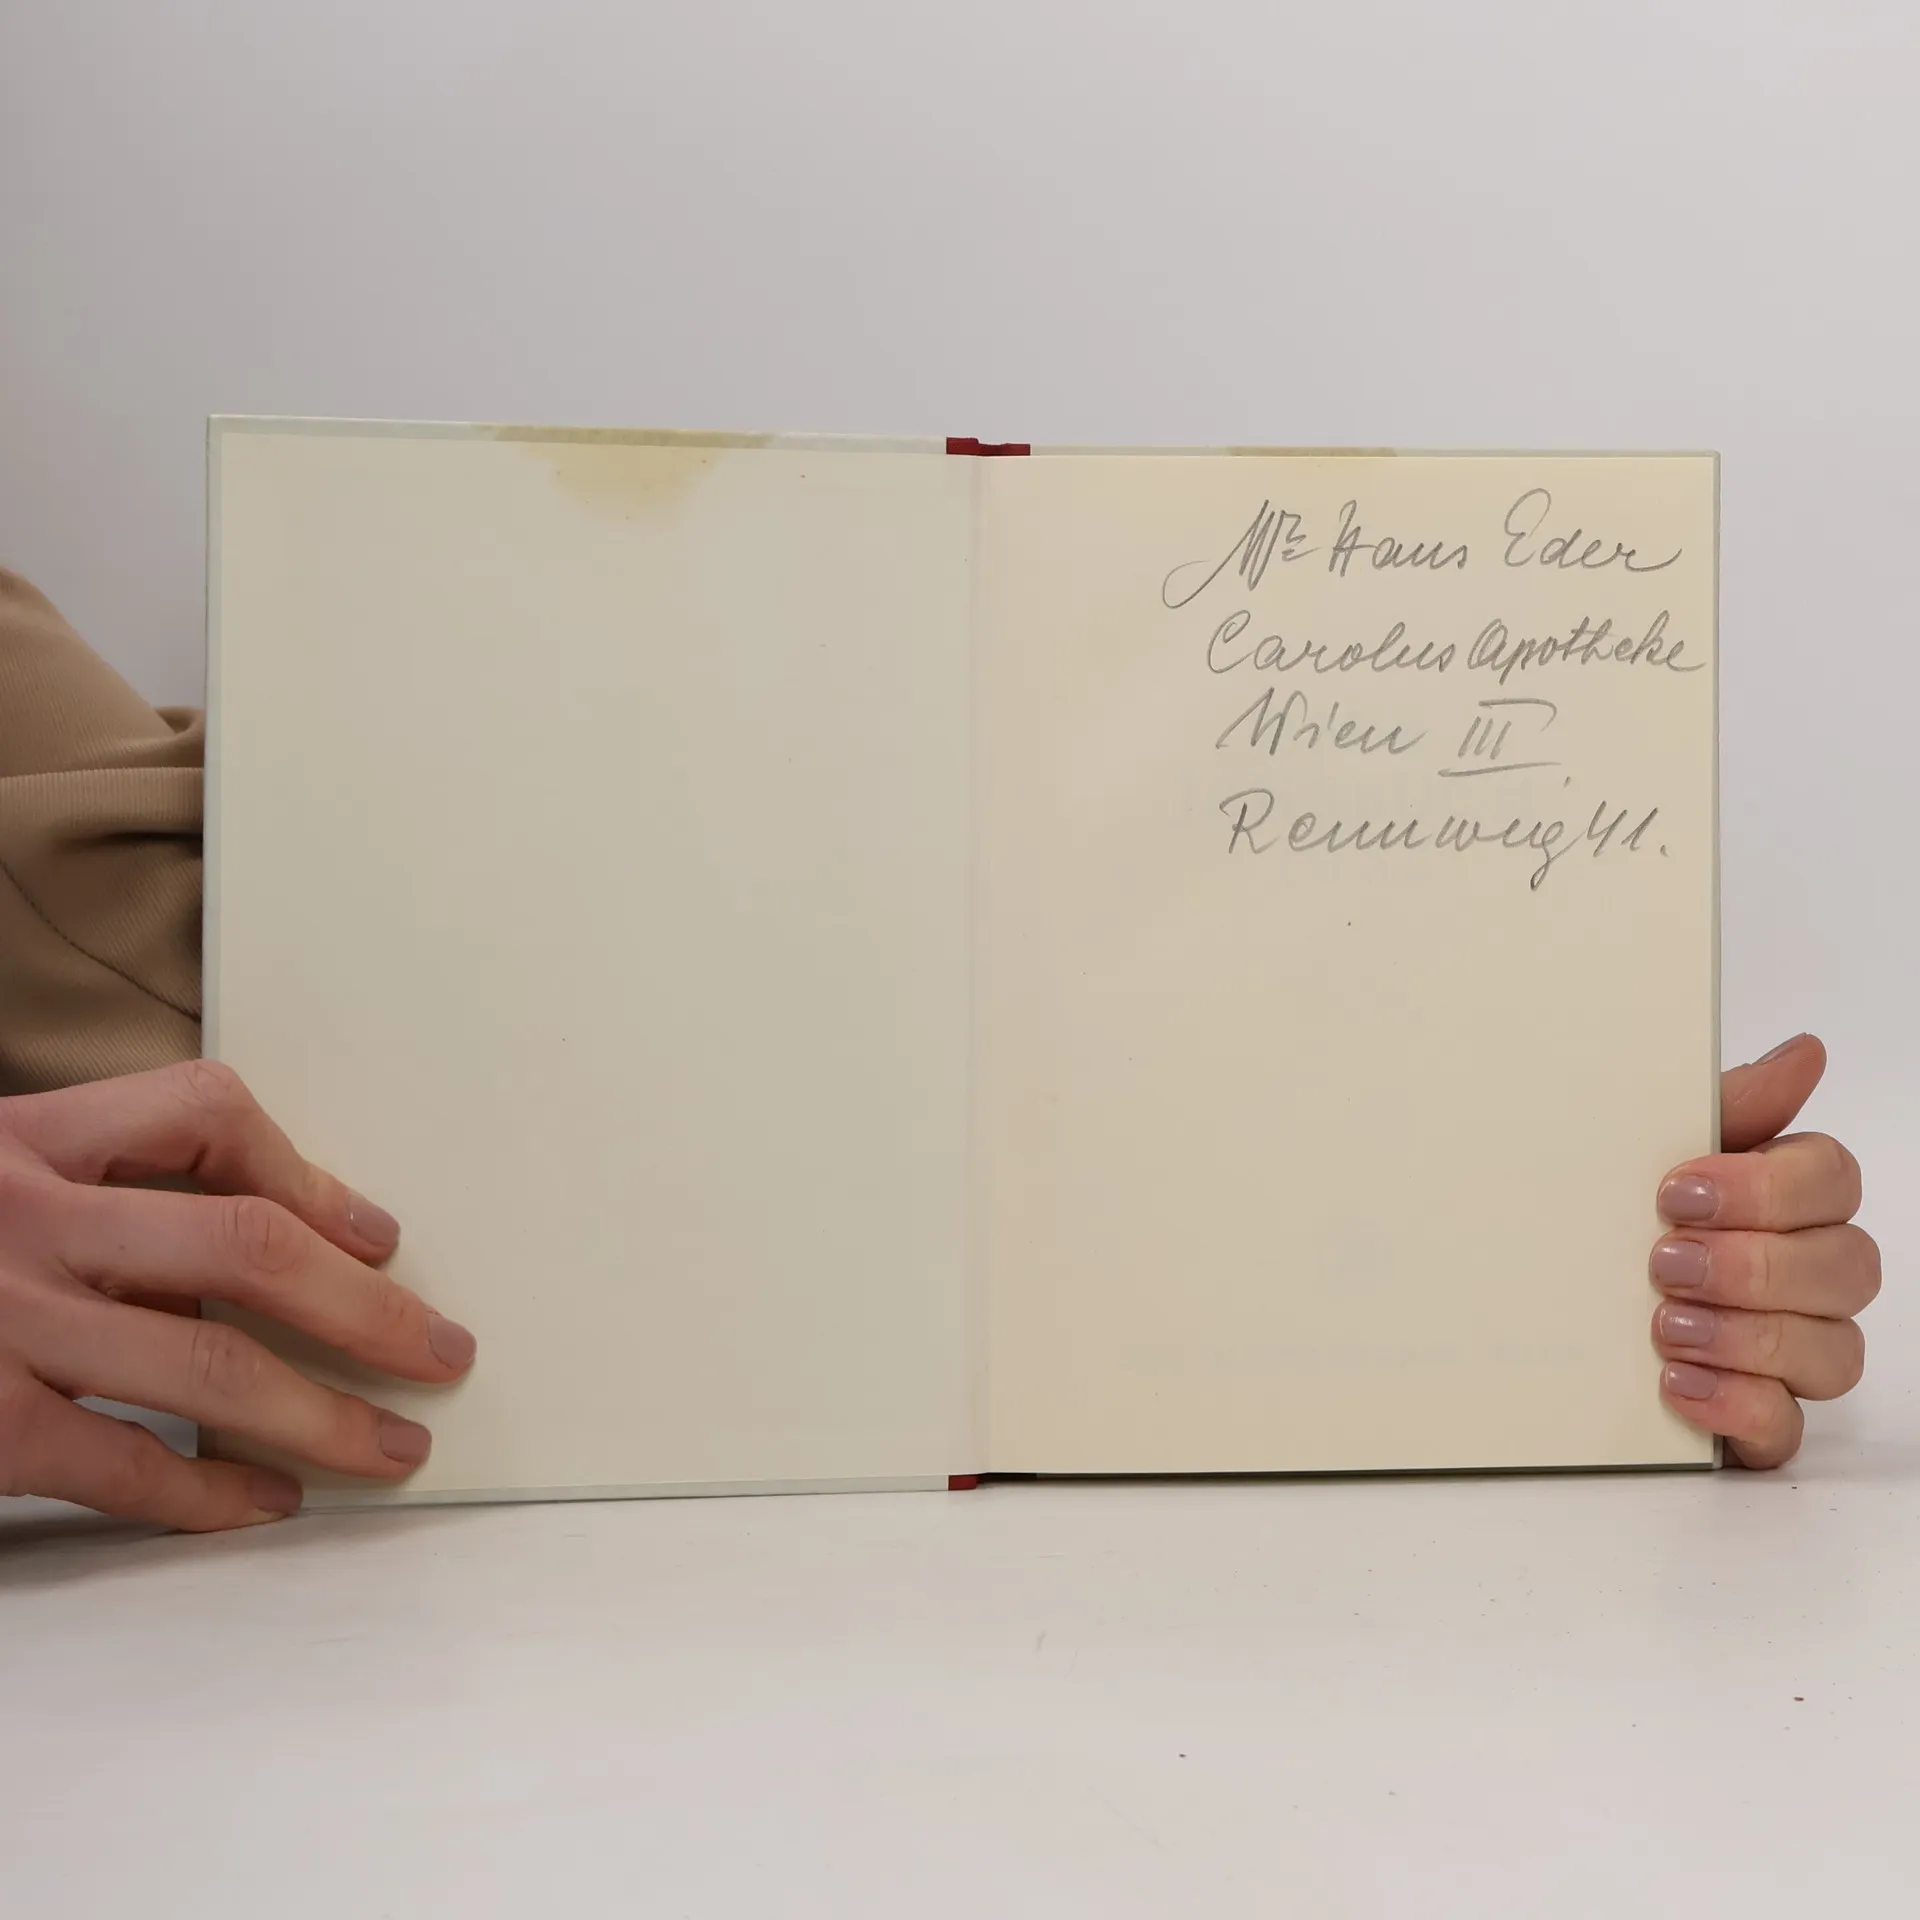 Mr Hans Eder
Carolus Apotheke
Wien III
Rennweg 41.